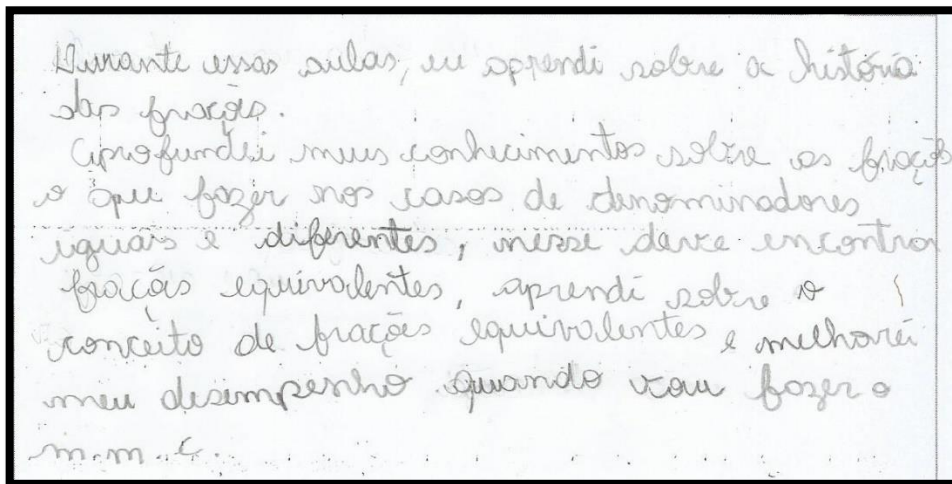 Durante essas aulas, eu aprendi sobre a história
das frações.
Aprofundei meus conhecimentos sobre as fraçõe
o que fazer nos casos de denominadores
iguais e diferentes, nesse deve encontra
fracões equivalentes, aprendi sobre o
conceito de frações equivalentes e melhorei
meu desempenho quando vou fazer o
m.m.c.